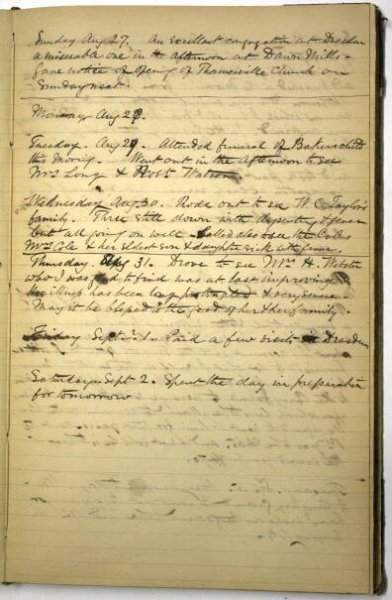 Sunday Aug 27. An excellent congregation at Dresden
a miserable one in the afternoon at Dawn Mills.
Gave notice of opening of Thamesville Church on
Sunday next.
Monday Aug 28.
Tuesday. Aug 29. Attended funeral of Bakers child
this morng. Went out in the afternoon to see
Mrs Long & Robt Watson
Wednesday Aug 30. Rode out to see W. C. Taylor's
family. Three still down with fever
but all going on well. Called also see the Coles
Mrs Cole & her eldest son & daughter sick with fever.
Thursday. Aug 31. Drove to see Mrs H. Webster
who I was glad to find was at last improving
Her illness has been & very severe.
May it be blessed to the good of her & her family.
Friday Sept 1. Paid a few visits in Dresden
Saturday Sept 2. Spent the day in preparation
for tomorrow